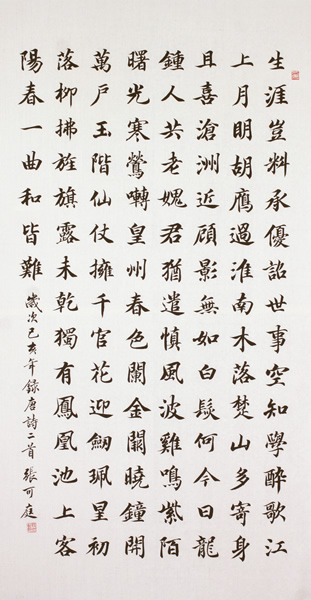 生涯豈料承優詔世事空知學醉歌江
上月明胡鴈過淮南木落楚山多寄身
且喜滄洲近顧影無如白髮何今日龍
鍾人共老媿君猶遣慎風波雞鳴紫陌
曙光寒鶯囀皇州春色闌金闕曉鐘開
萬戶玉階仙仗擁千官花迎劒珮星初
落柳拂旌旗露未乾獨有鳳凰池上客
陽春一曲和皆難
歲次己亥年錄唐詩二首張可庭